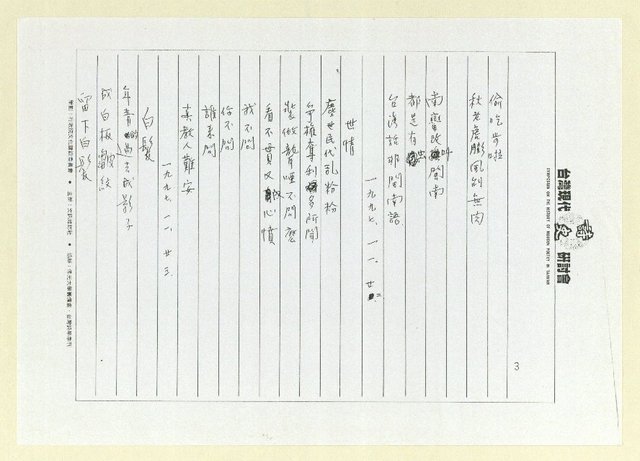 台灣現代詩史研討會
SYMPOSIUM ON THE HISTORY OF MODERN POETRY IN TAIWAN
3
偷吃步啦
秋老虎膨風刮無肉
南蠻改叫閩南
都是有虫
台灣話非閩南語
一九九七、一一、廿
世情
塵世民代亂粉粉
爭權奪利多所聞
裝做聾啞不問塵
看不貫又心憤
我不問
你不問
誰來問
真教人難安
一九九七、一一、廿三
白髮
年青的過去成影子
成白板皺紋
留下白髮